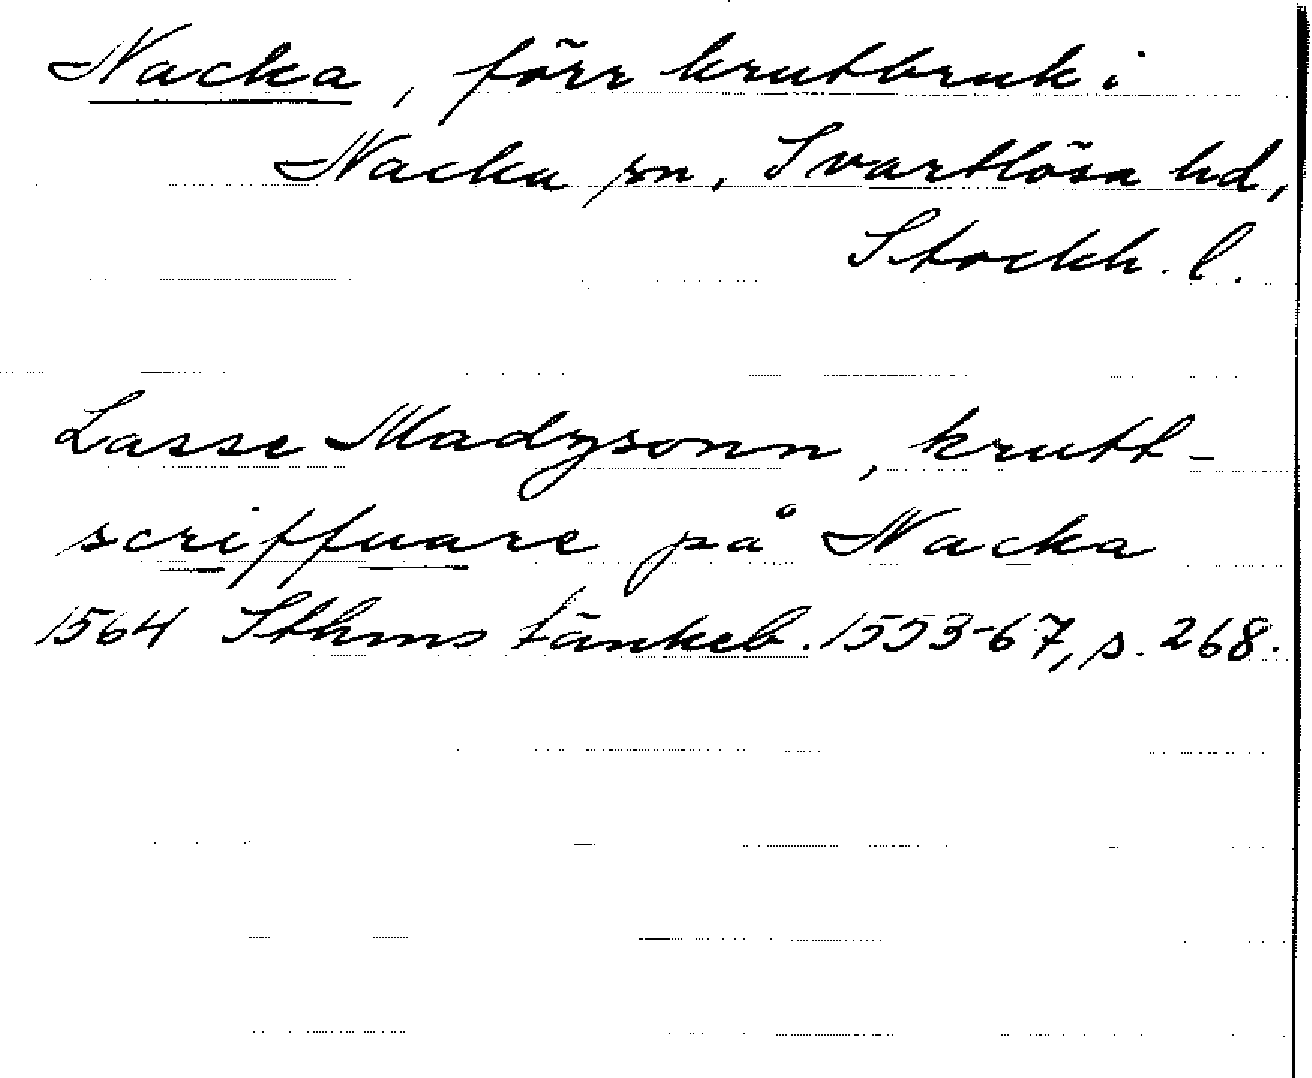 Nacka, förr krutbruk i
Nacka sn, Svartlösa hd,
Stockh. l.
Lasse Madzsonn, krutt-
scriffuare på Nacka
1564 Sthms tänkeb. 1553-67, s. 268.